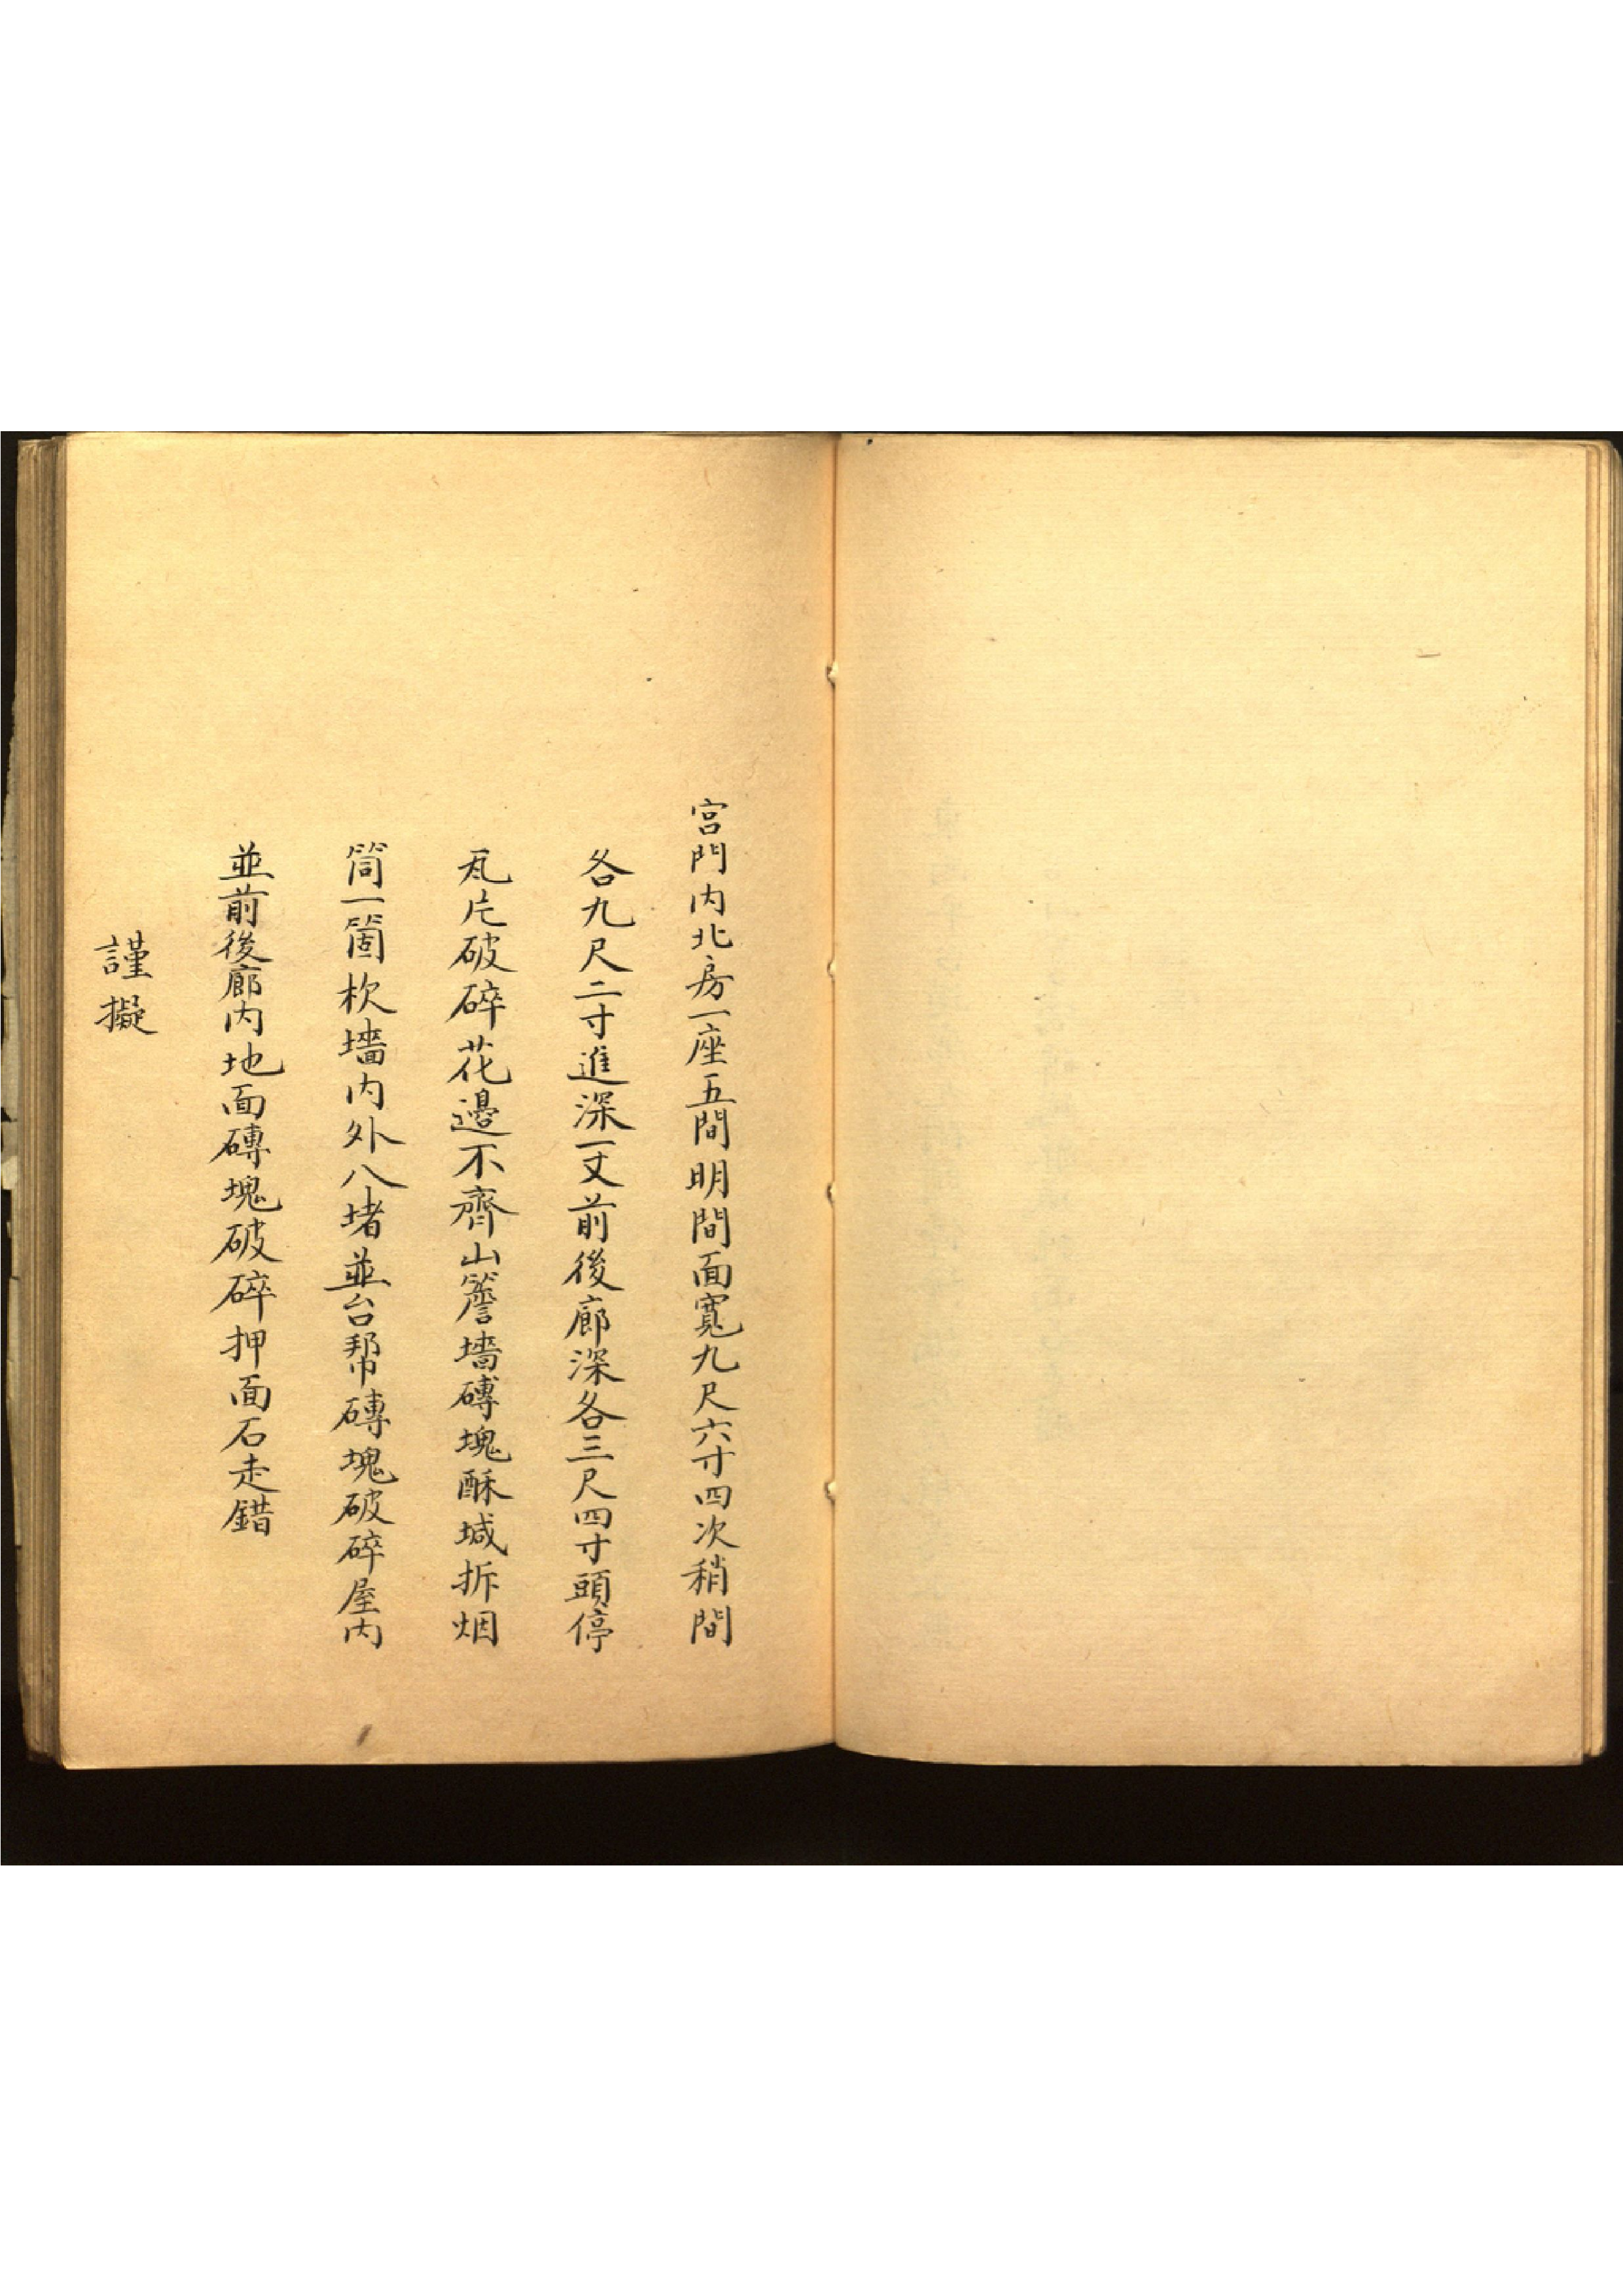 宮門內北房一座五間明間面寬九尺六寸四次稍間
各九尺二寸進深一丈前後廊深各三尺四寸頭停
瓦片破碎花邊不齊山簷墻磚塊酥堿拆烟
筒一箇杴墻內外八堵並台幇磚塊破碎屋內
並前後廊內地面磚塊破碎押面石走錯
謹擬